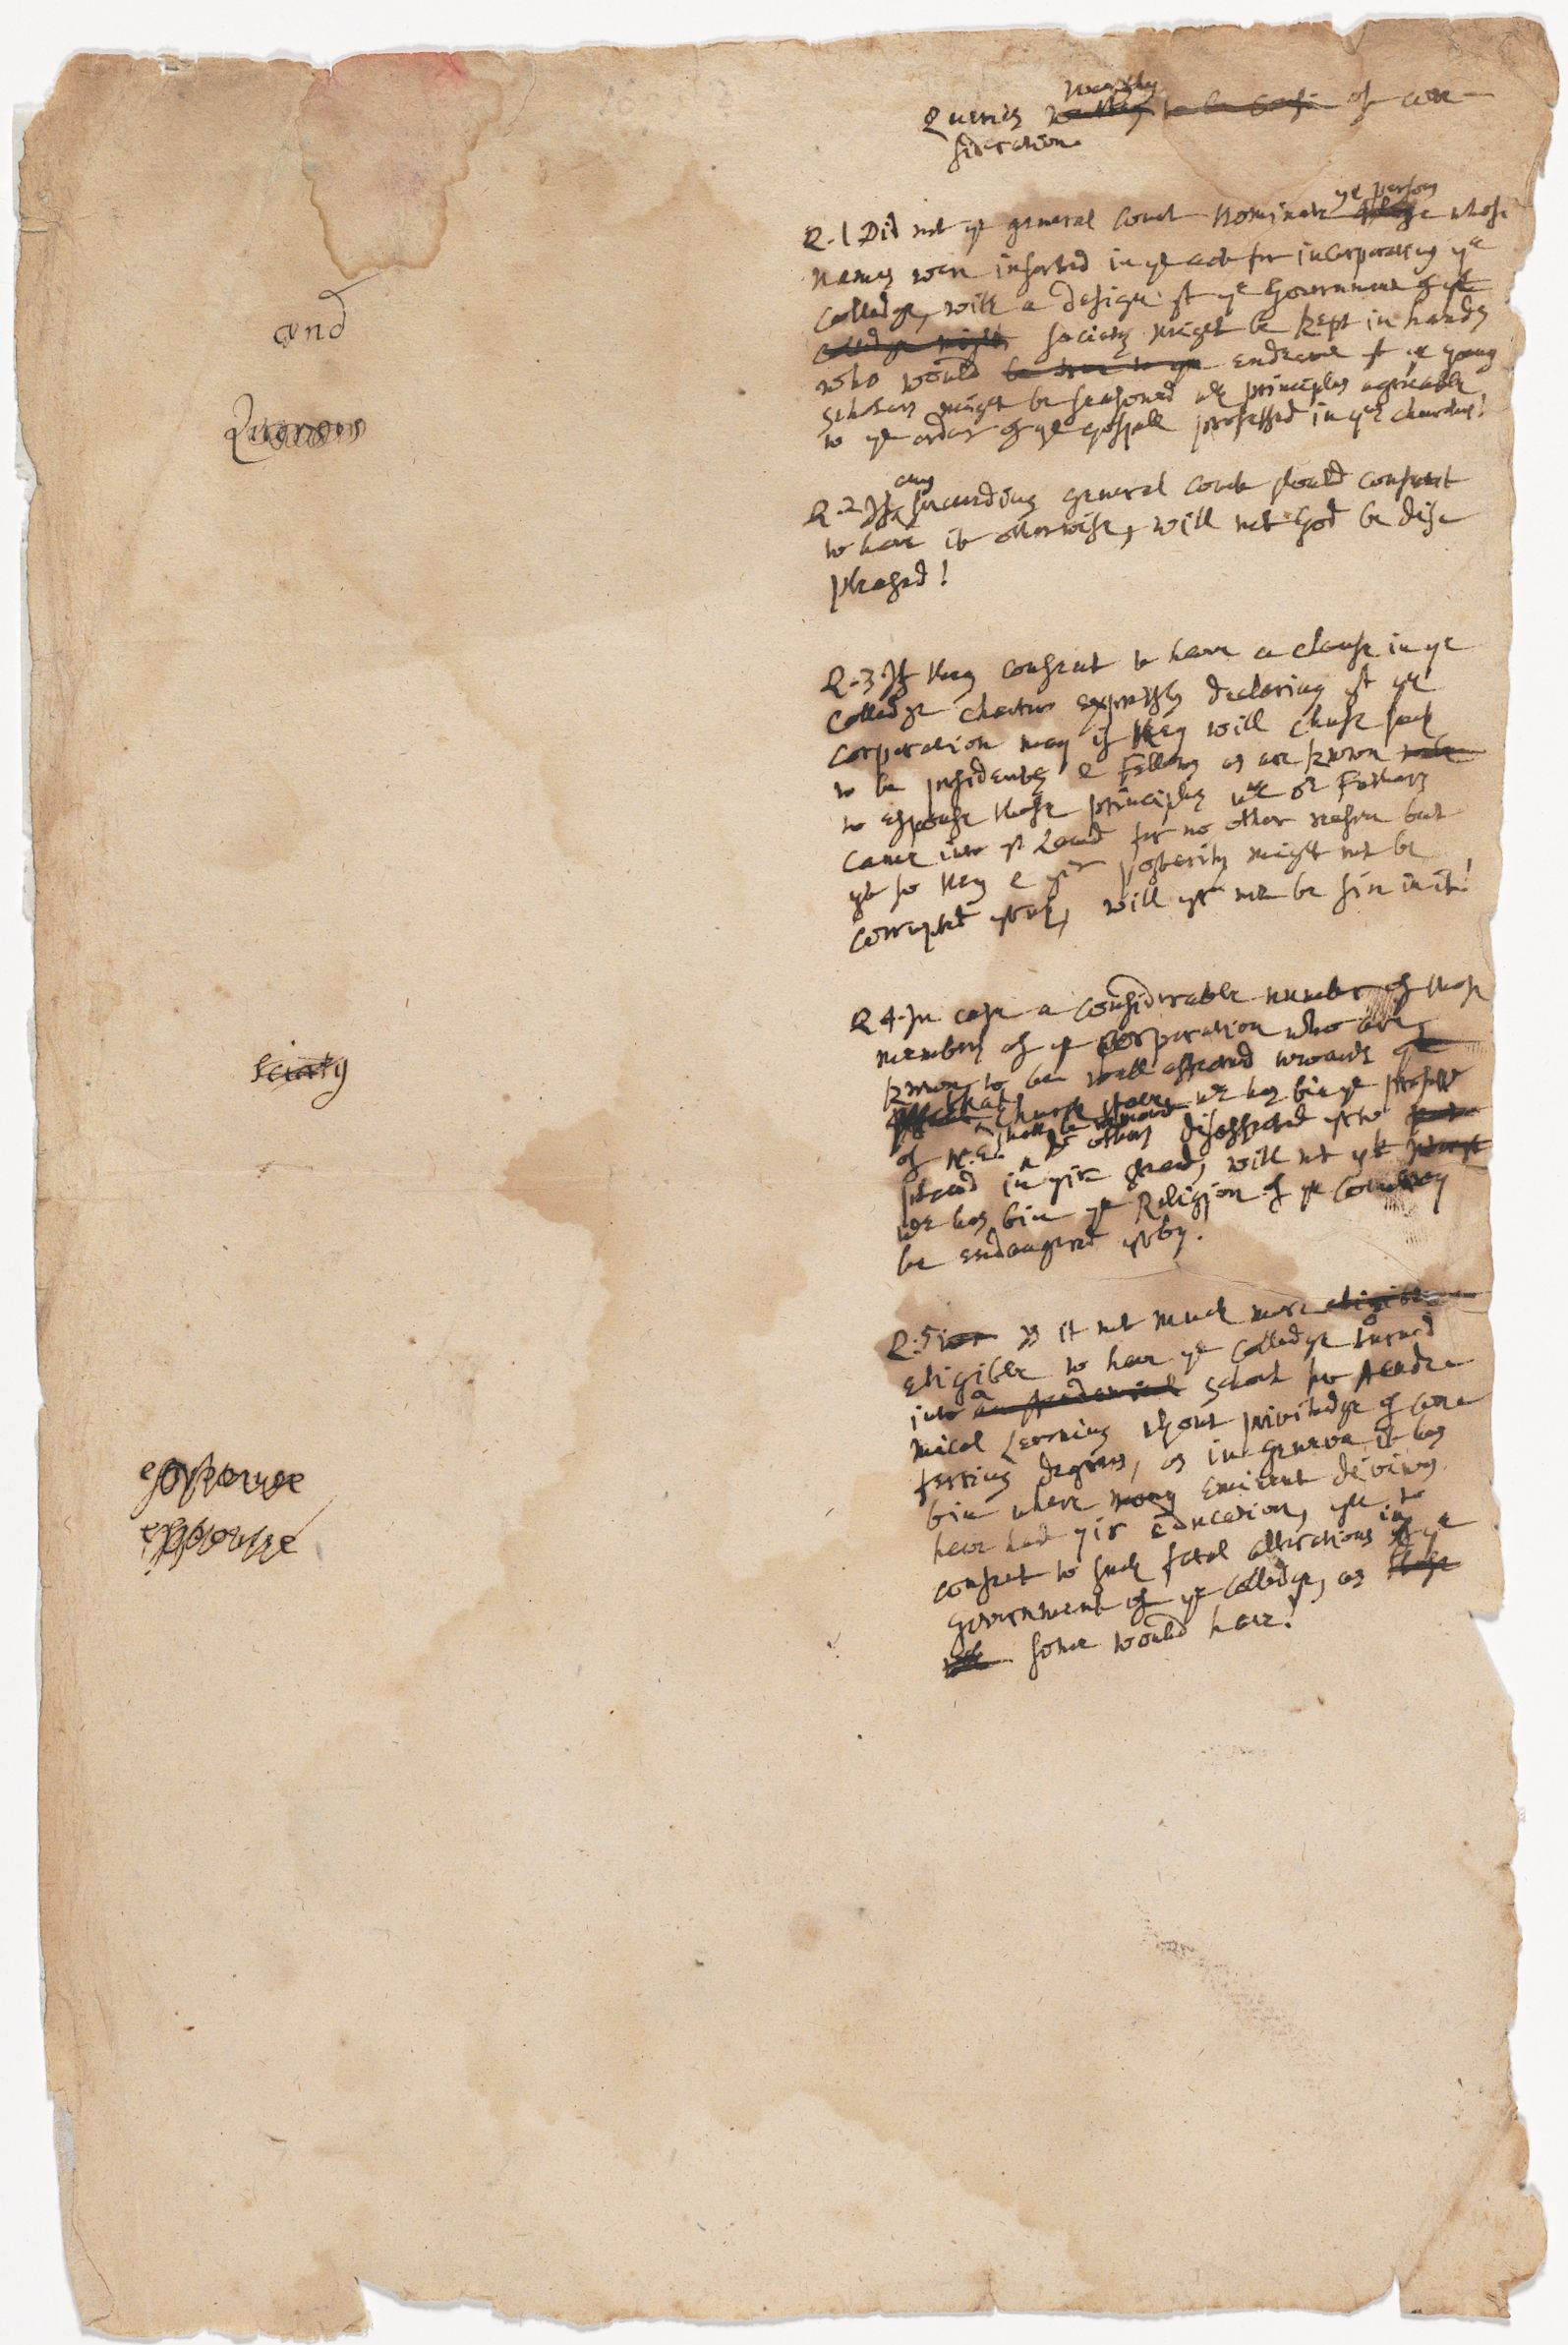 Queries worthy of con-
sideration.
Q. 1 Did not ye general Court Nominate ye persons whose
names were inserted in ye act for incorporating ye
Colledge, with a design yt ye Government of ye
Colledge might society might be kept in hands
who would endeavor yt ye young
scholars might be seasoned wth principles agreeable
to ye order of ye gospell professed in yes churches?
Q. 2 If any succeeding general Court should consent
to have it otherwise, will not God be dis-
pleased?
Q. 3 If they consent to have a clause in ye
Colledge charter expressly declaring yt ye
Corporation may if they will chuse such
to be presidents & Fellows as are known
to espouse those principles wch or Fathers
came into ys Land for no other reason but
yt so they & yir posterity might not be
corrupted yrwth, will yr not be sin in it?
Q 4. In case a considerable number of those
members of ye Corporation who are
known to be well affected towards ye
that Church state wch has bin ye profess
of N. E. shall be removed & others disaffected yrto
placed in yir stead, will not yt
wch has bin ye Religion of ye Countrey
be endangered yrby.
Q. 5 is it not much more
eligible to have ye Colledge turned
into a School for Acade-
mical Learning without priviledge of con-
ferring degrees, as in Geneva it has
bin where many eminent divines
have had yir education, yn to
consent to such fatal alterations in ye
government of ye Colledge, as those
some would have?
and
sciaty
espouse